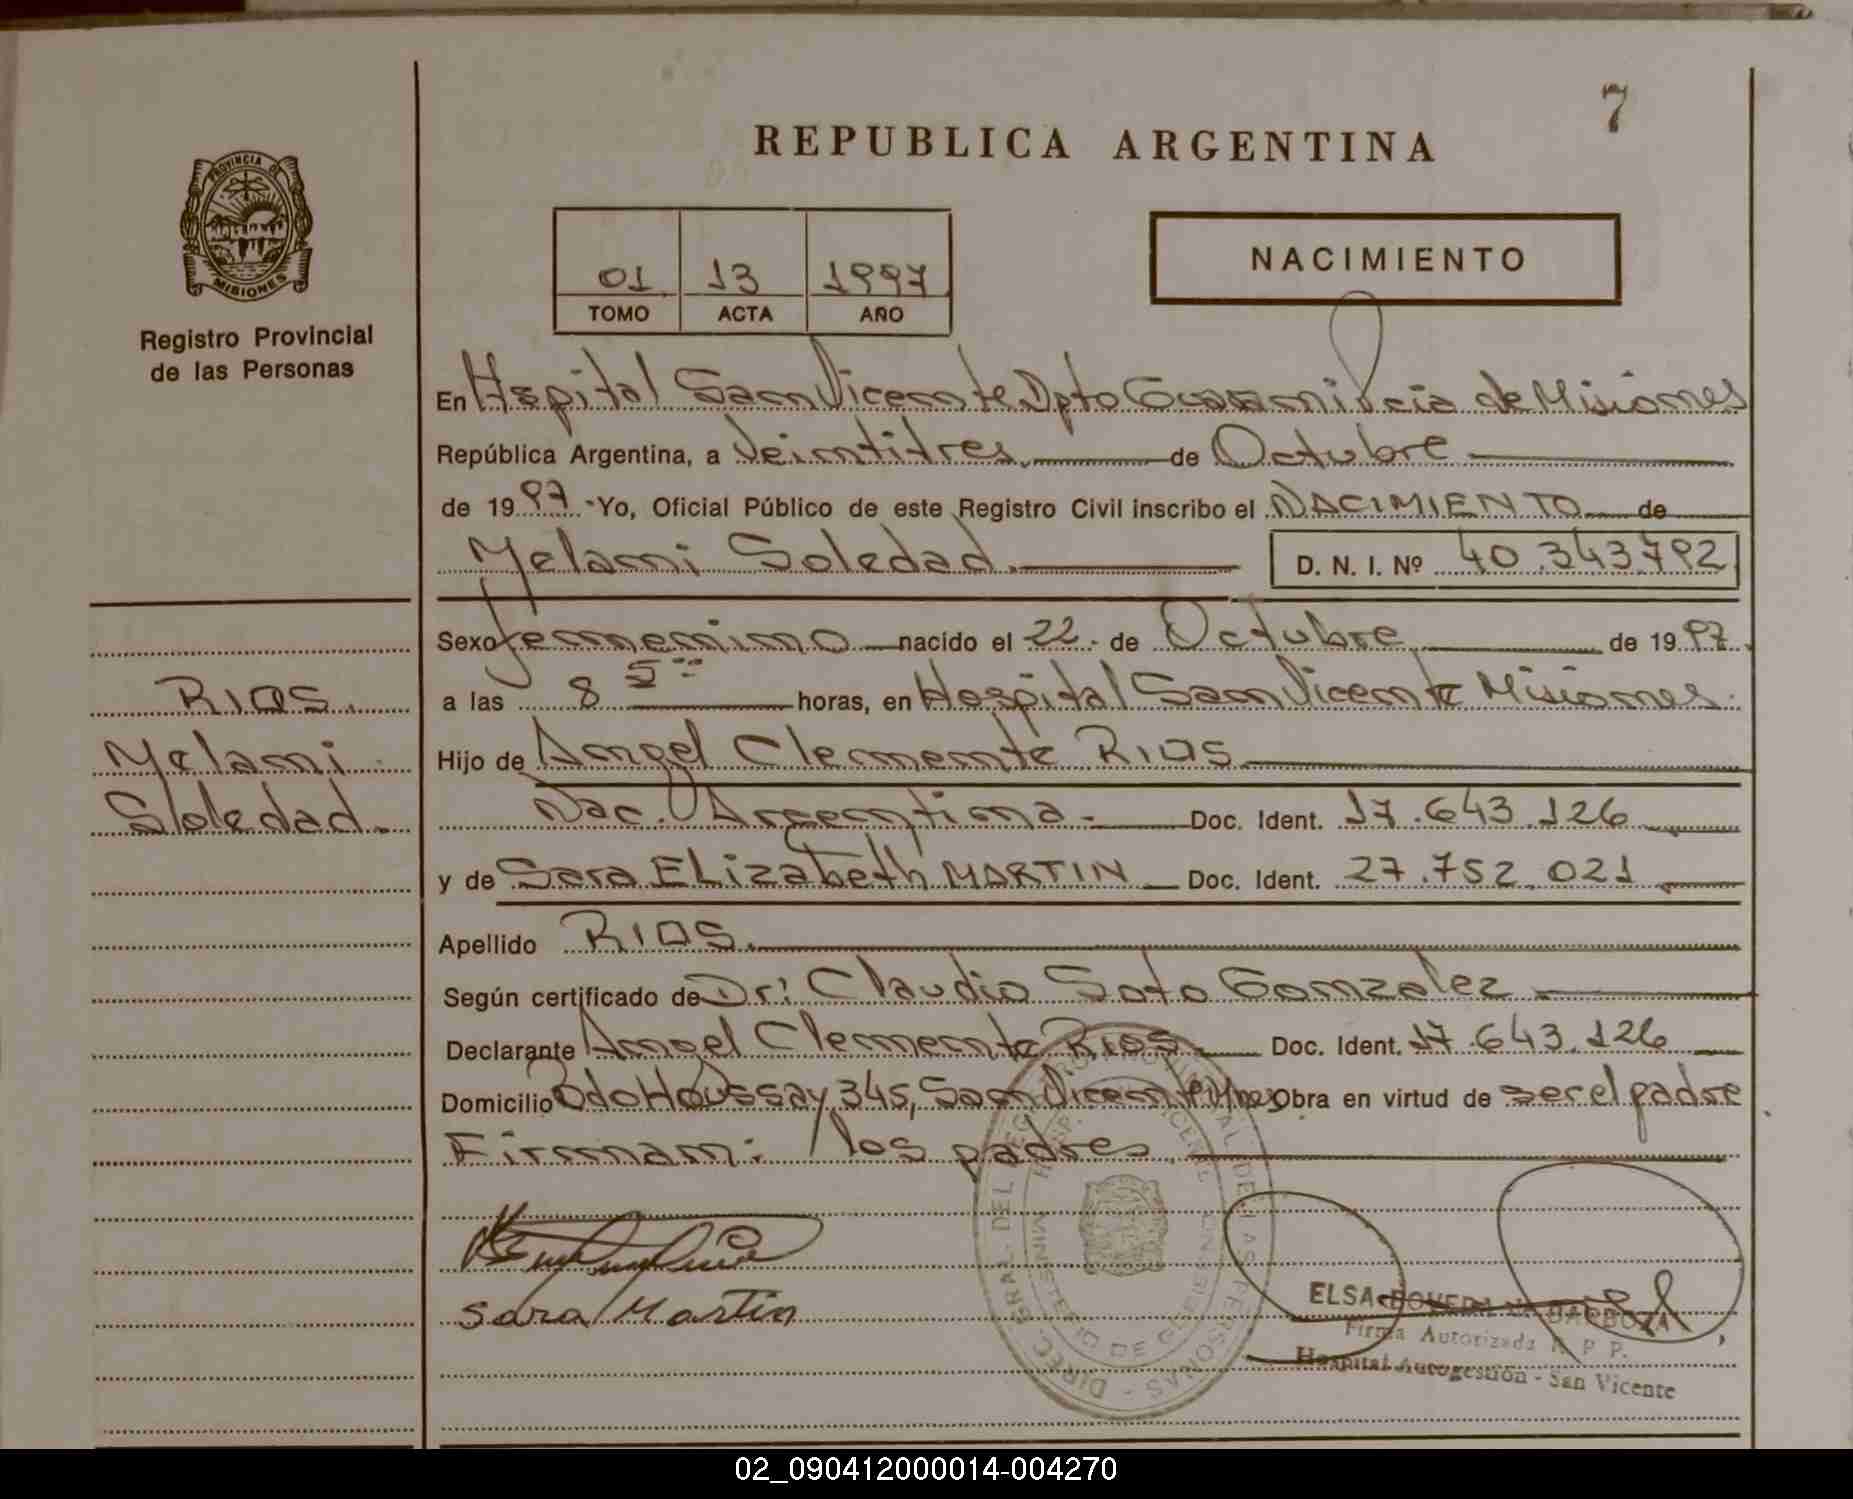 7
REPUBLICA ARGENTINA
PROVINCIA DE
MISIONES
Registro Provincial
de las Personas
01 13 1997
TOMO ACTA AÑO
NACIMIENTO
En Hospital San Vicente Dpto Guarani Pcia de Misiones
República Argentina, a Veintitres de Octubre
de 1997 - Yo, Oficial Público de este Registro Civil inscribo el NACIMIENTO de
Melani Soledad. D. N. I. Nº 40.343.792
Sexo femenino nacido el 22 de Octubre de 1997.
a las 8 horas, en Hospital San Vicente Misiones.
Hijo de Angel Clemente RIOS
Nac. Argentina. Doc. Ident. 17.643.126
y de Sara ELizabeth MARTIN Doc. Ident. 27.752.021
Apellido RIOS.
Según certificado de Dr: Claudio Soto Gonzalez
Declarante Angel Clemente Rios Doc. Ident. 17.643.126
Domicilio Bdo Houssay 345, San Vicente Mnes Obra en virtud de ser el padre
Firman: los padres
Sara Martin
RIOS.
Melani
Soledad.
DIREC. GRAL. DEL REGISTRO PROVINCIAL DE LAS PERSONAS
MINISTERIO DE
ELSA DE BARBOZA
Firma Autorizada R. P. P.
Hospital Autogestión - San Vicente
02_090412000014-004270